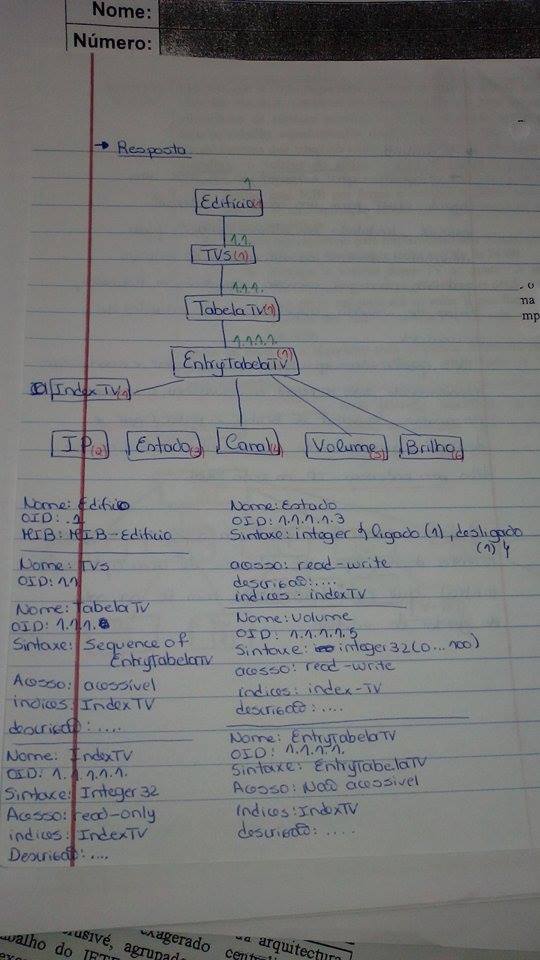 Nome:
Número:
→ Resposta
1
Edifício(1)
1.1.
TVs(1)
1.1.1.
TabelaTV(1)
1.1.1.1.
EntryTabelaTV(1)
IndexTV(1)
IP(2) Estado(3) Canal(4) Volume(5) Brilho(6)
Nome: Edifício
OID: .1
MIB: MIB-Edifício
Nome: TVs
OID: 1.1
Nome: TabelaTV
OID: 1.1.1.
Sintaxe: Sequence of
EntryTabelaTV
Acesso: acessível
índices: IndexTV
descrição: ....
Nome: IndexTV
OID: 1.1.1.1.1.
Sintaxe: Integer32
Acesso: read-only
indices: IndexTV
Descrição: ....
Nome: Estado
OID: 1.1.1.1.3
Sintaxe: integer { ligado (1), desligado
(1) }
acesso: read-write
descrição: ....
índices: indexTV
Nome: Volume
OID: 1.1.1.1.5
Sintaxe: integer32 (0...100)
acesso: read-write
índices: index-TV
descrição: ....
Nome: EntryTabelaTV
OID: 1.1.1.1.
Sintaxe: EntryTabelaTV
Acesso: Não acessível
Índices: IndexTV
descrição: ....
- o
na
mp
exagerado
da arquitectura
agrupad